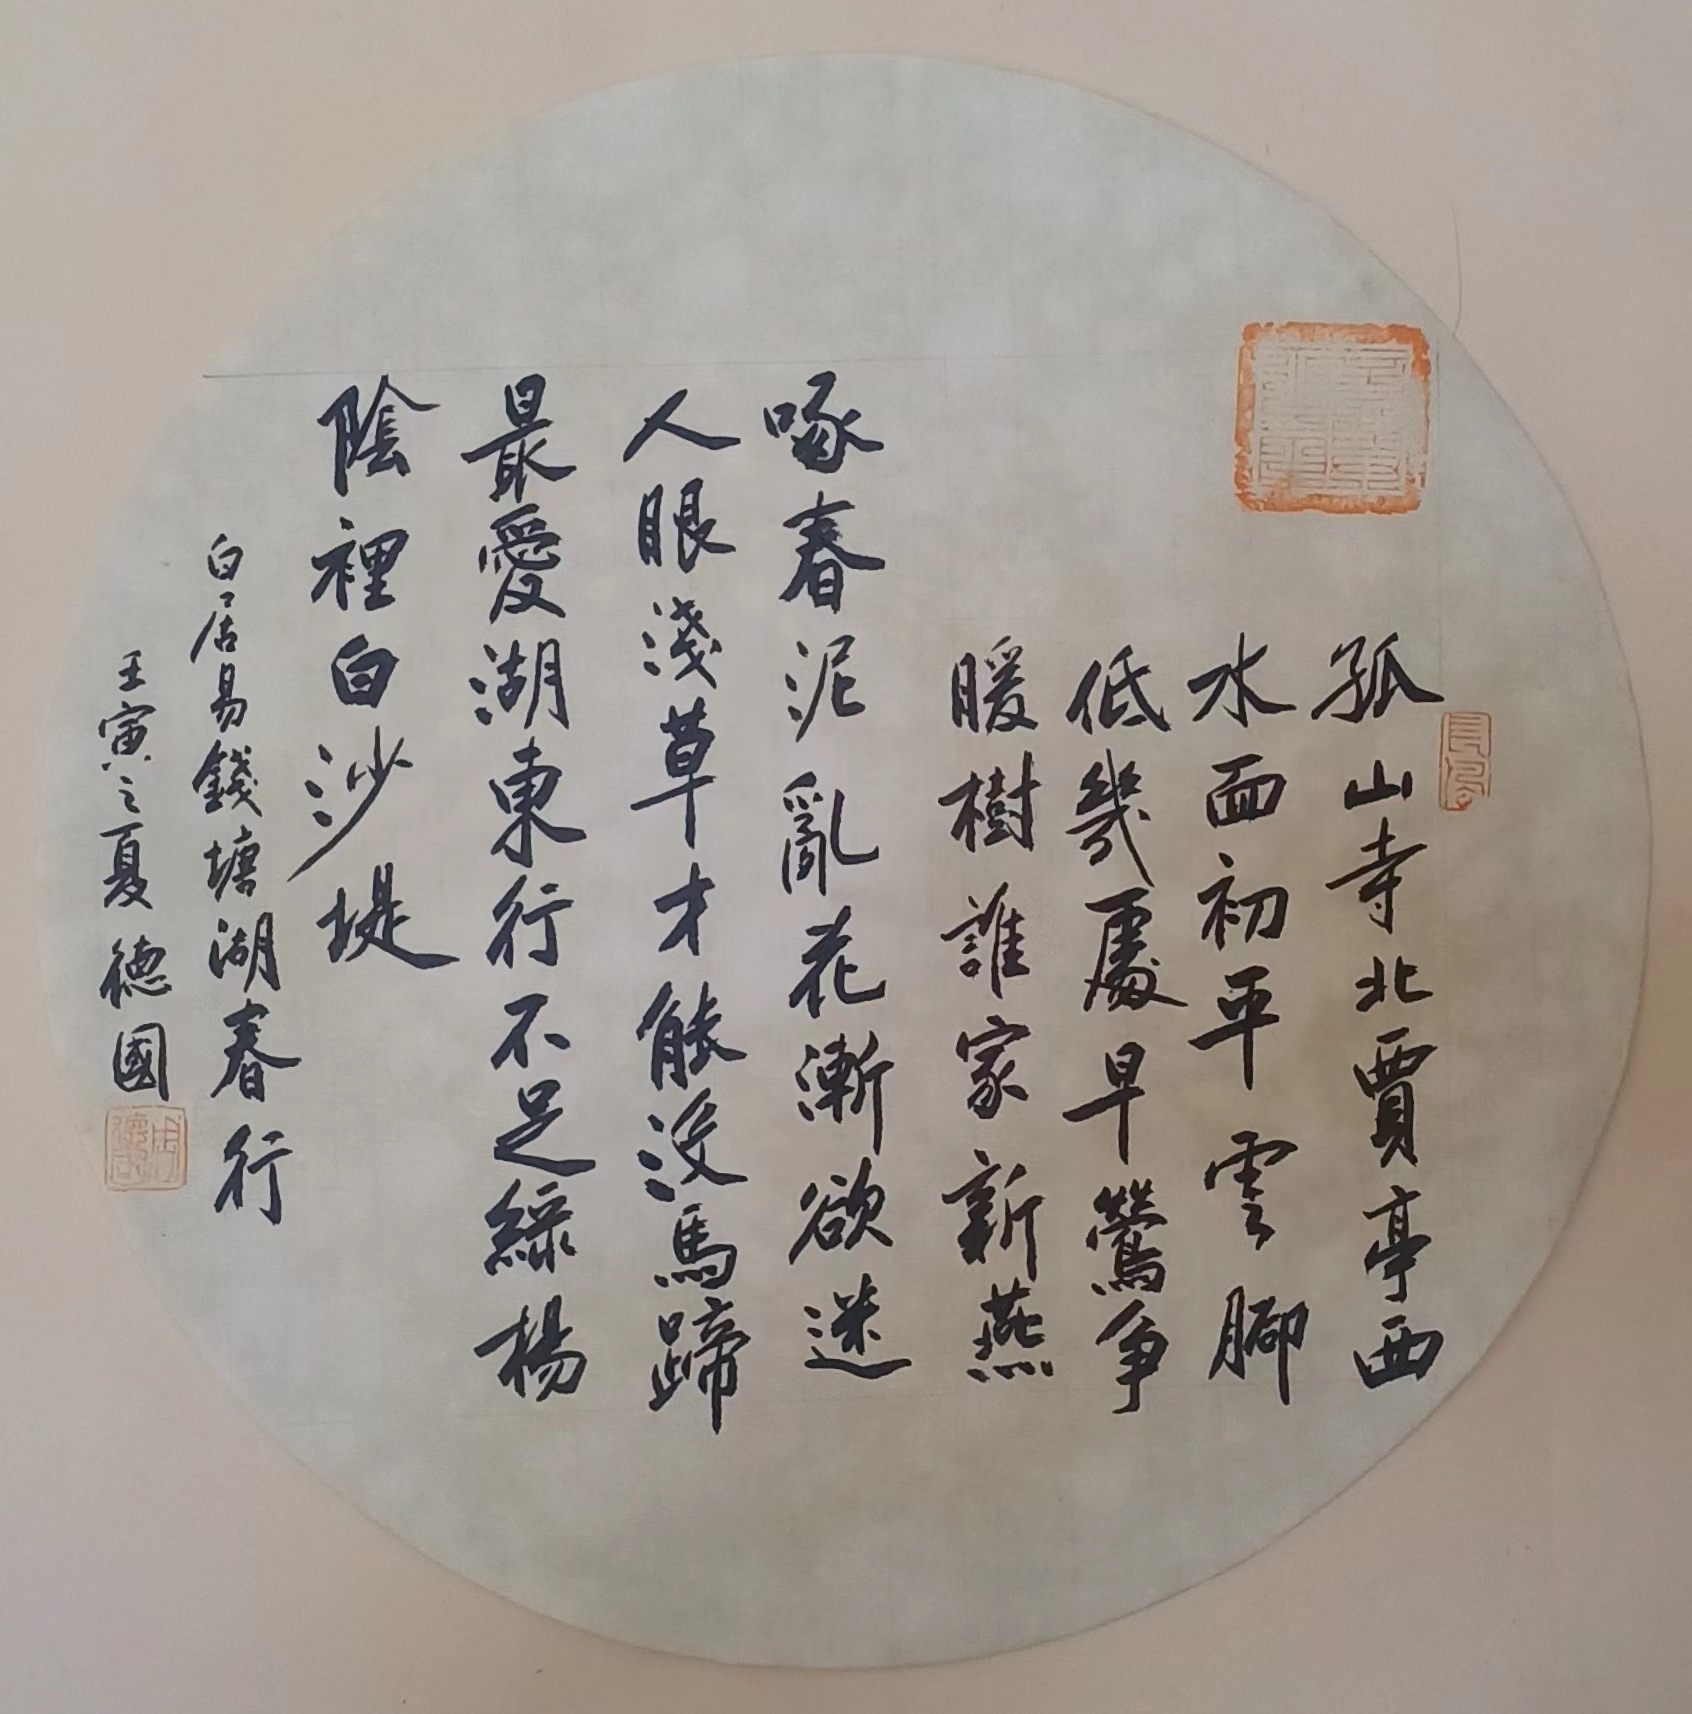 孤山寺北賈亭西
水面初平雲腳
低幾處早鶯爭
暖樹誰家新燕
啄春泥亂花漸欲迷
人眼淺草才能没馬蹄
最愛湖東行不足綠楊
陰裡白沙堤
白居易錢塘湖春行
壬寅之夏德國